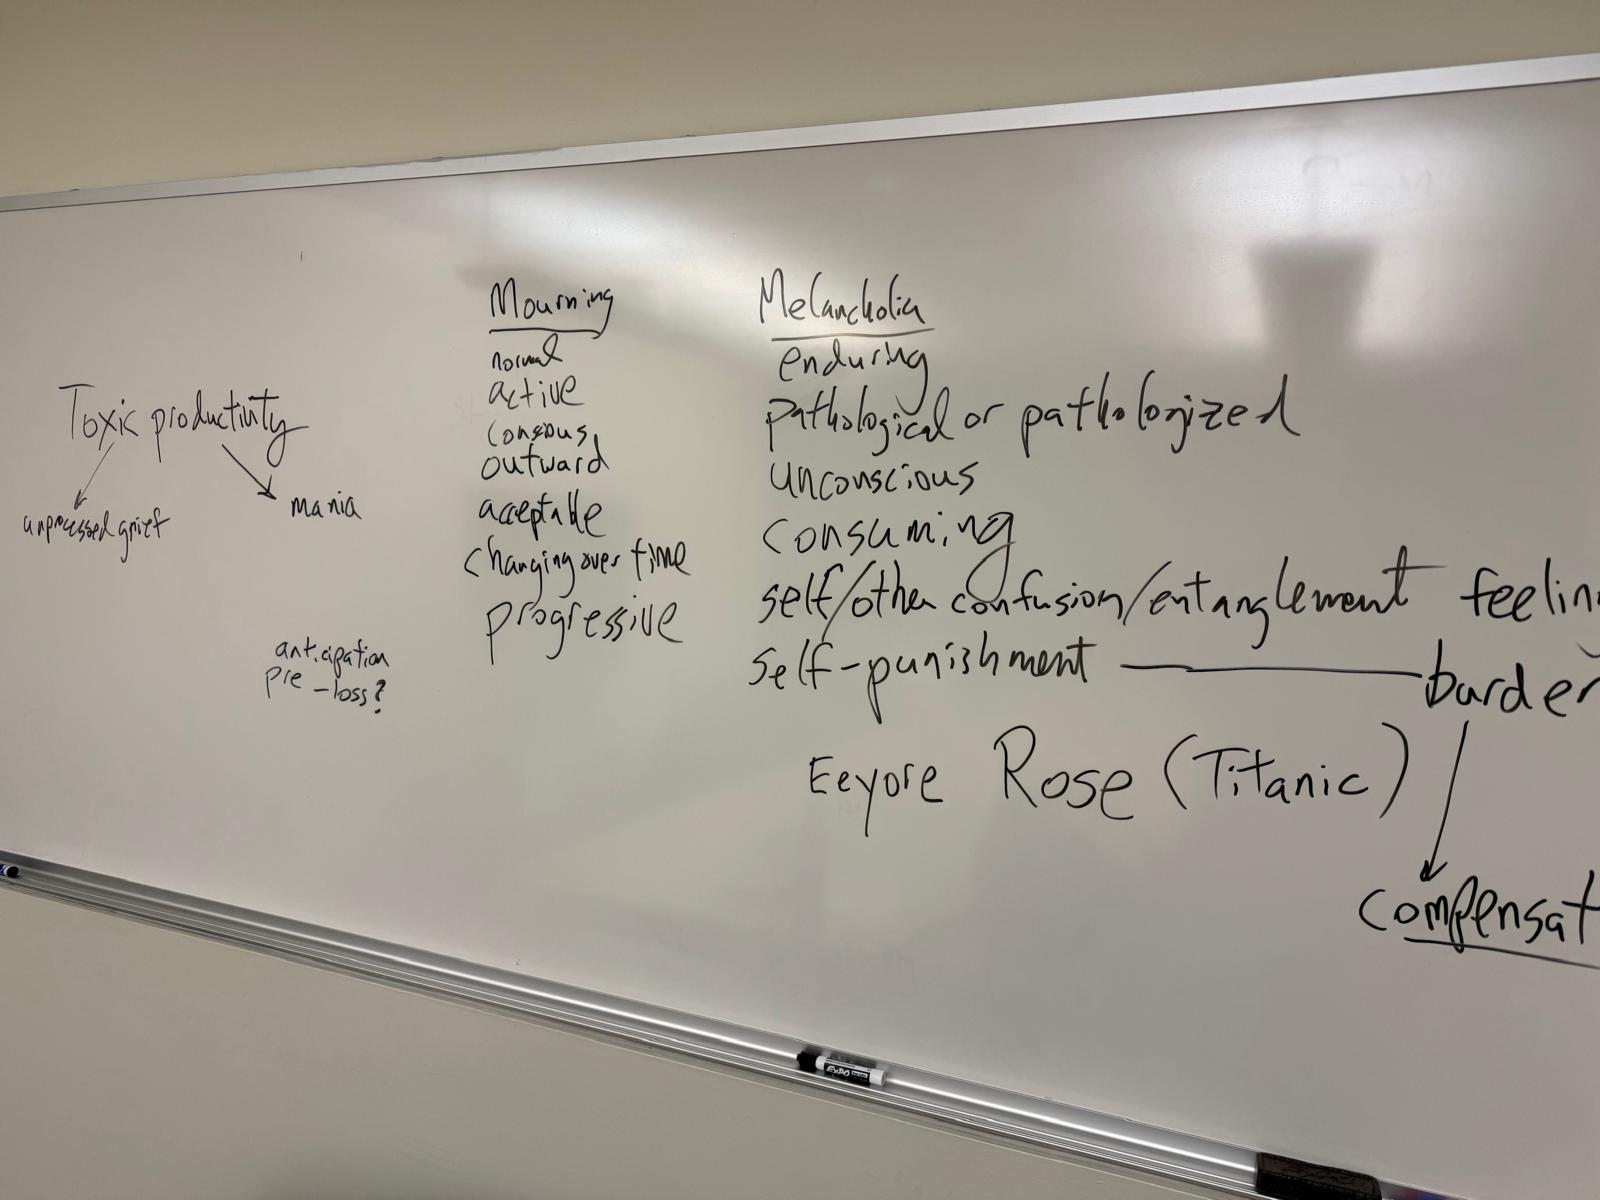 Toxic productivity
unprocessed grief
mania
anticipation
pre-loss?
Mourning
normal
active
consious
outward
acceptable
changing over time
progressive
Melancholia
enduring
pathological or pathologized
unconscious
consuming
self/other confusion/entanglement feelin
self-punishment burder
Eeyore Rose (Titanic)
compensat
EXPO